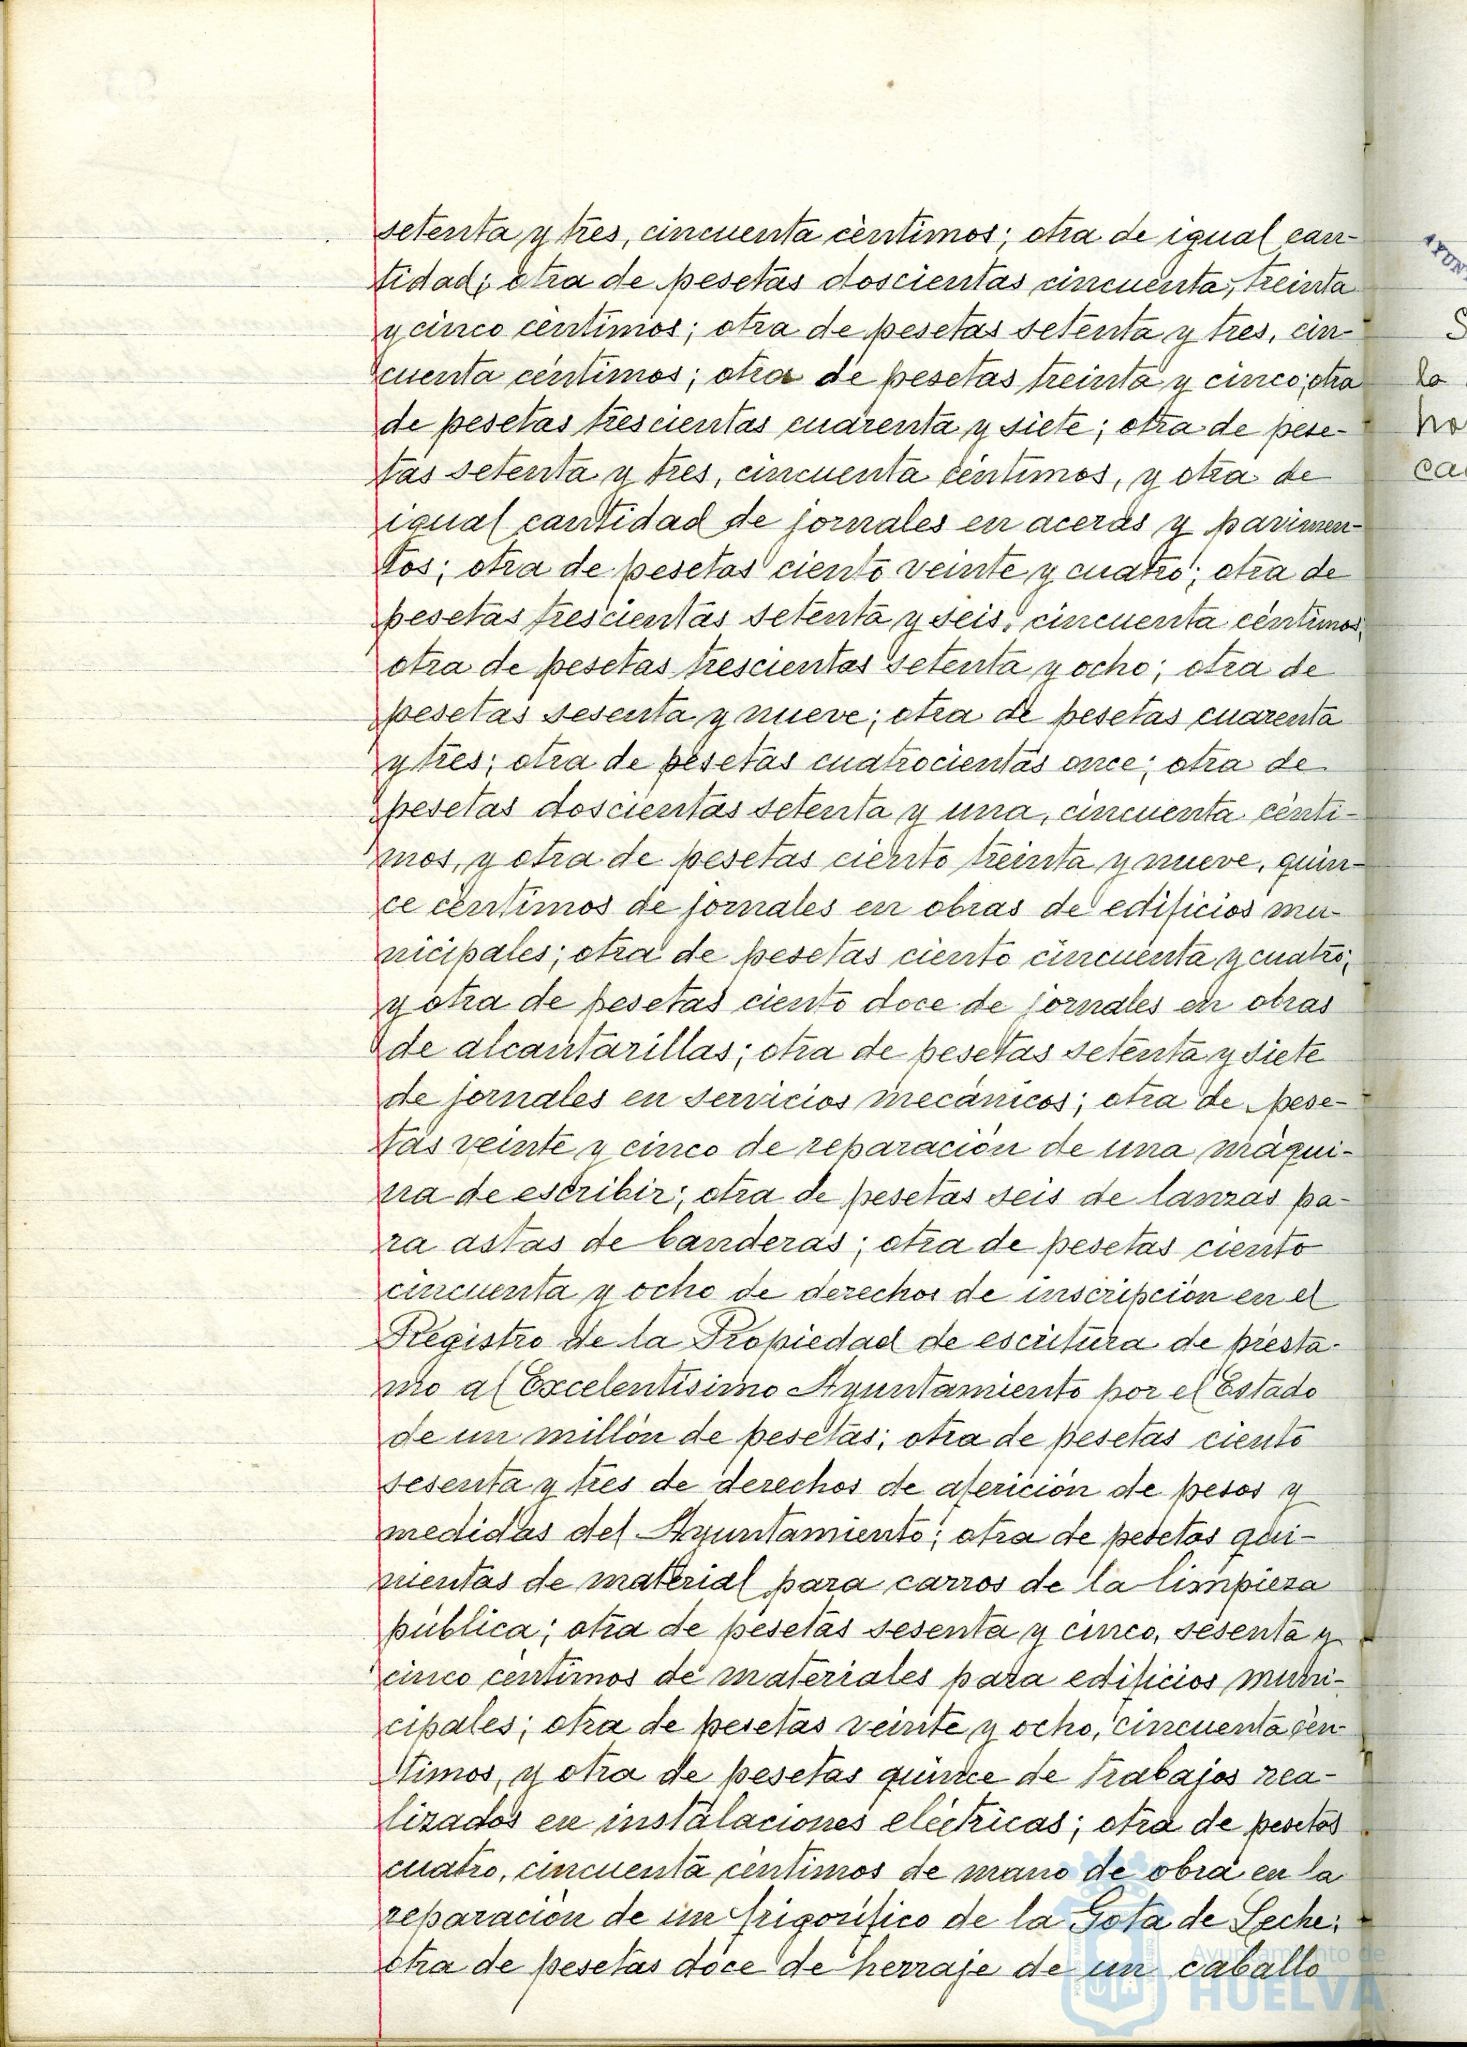 setenta y tres, cincuenta céntimos; otra de igual can-
tidad; otra de pesetas doscientas cincuenta, treinta
y cinco céntimos; otra de pesetas setenta y tres, cin-
cuenta céntimos; otra de pesetas treinta y cinco; otra
de pesetas trescientas cuarenta y siete; otra de pese-
tas setenta y tres, cincuenta céntimos, y otra de
igual cantidad de jornales en aceras y pavimen-
tos; otra de pesetas ciento veinte y cuatro; otra de
pesetas trescientas setenta y seis, cincuenta céntimos;
otra de pesetas trescientas setenta y ocho; otra de
pesetas sesenta y nueve; otra de pesetas cuarenta
y tres; otra de pesetas cuatrocientas once; otra de
pesetas doscientas setenta y una, cincuenta cénti-
mos, y otra de pesetas ciento treinta y nueve, quin-
ce céntimos de jornales en obras de edificios mu-
nicipales; otra de pesetas ciento cincuenta y cuatro;
y otra de pesetas ciento doce de jornales en obras
de alcantarillas; otra de pesetas setenta y siete
de jornales en servicios mecánicos; otra de pese-
tas veinte y cinco de reparación de una máqui-
na de escribir; otra de pesetas seis de lanzas pa-
ra astas de banderas; otra de pesetas ciento
cincuenta y ocho de derechos de inscripción en el
Registro de la Propiedad de escritura de présta-
mo al Excelentísimo Ayuntamiento por el Estado
de un millón de pesetas; otra de pesetas ciento
sesenta y tres de derechos de aferición de pesos y
medidas del Ayuntamiento; otra de pesetas qui-
nientas de material para carros de la limpieza
pública; otra de pesetas sesenta y cinco, sesenta y
cinco céntimos de materiales para edificios muni-
cipales; otra de pesetas veinte y ocho, cincuenta cén-
timos, y otra de pesetas quince de trabajos rea-
lizados en instalaciones eléctricas; otra de pesetas
cuatro, cincuenta céntimos de mano de obra en la
reparación de un frigorífico de la Gota de Leche;
otra de pesetas doce de herraje de un caballo
Ayuntamiento de
HUELVA
AYUN
S
la
ho
ca